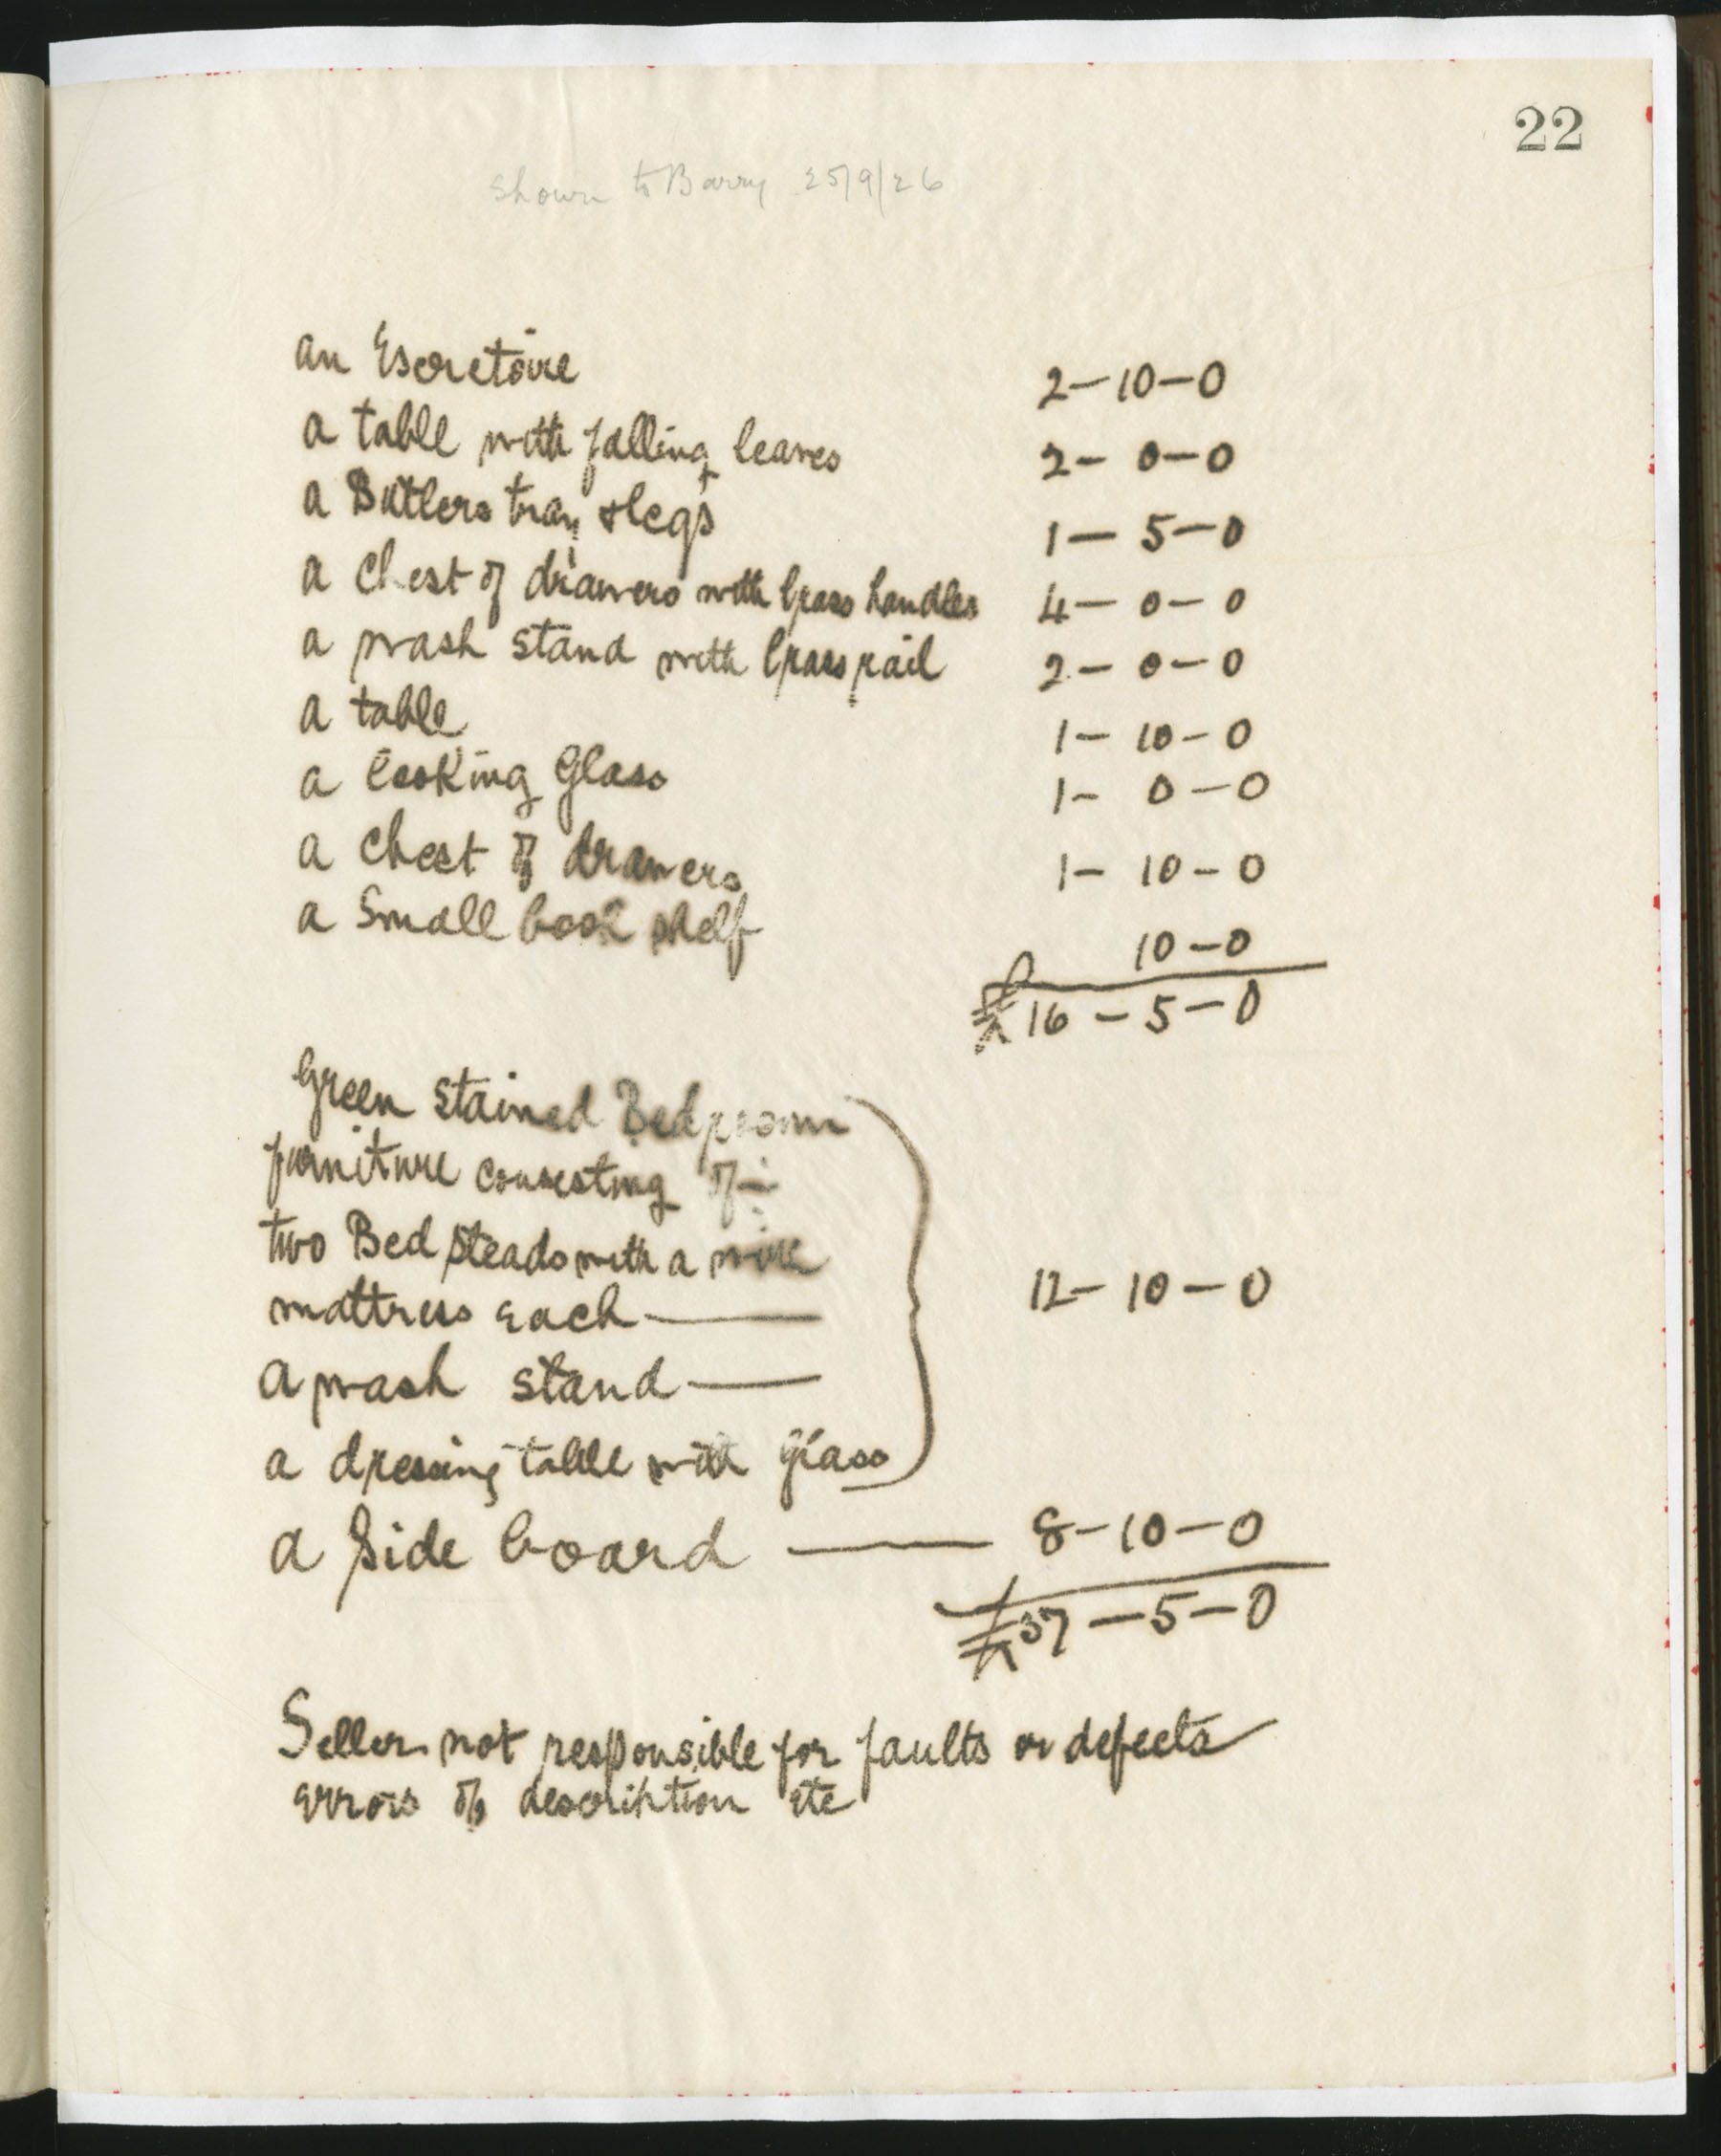 22
Shown to Barry 25/9/26
an Escretoire 2-10-0
a table with falling leaves 2-0-0
a Butlers tray & legs 1-5-0
a Chest of drawers with brass handles 4-0-0
a wash stand with brass rail 2-0-0
a table 1-10-0
a looking Glass 1-0-0
a chest of drawers 1-10-0
a Small book shelf 10-0
£16-5-0
Green Stained Bedroom
furniture consesting of :-
two Bed steads with a wire
mattress each — 12-10-0
a wash stand —
a dressing table with glass
a Side board — 8-10-0
£37-5-0
Seller not responsible for faults or defects
errors of description etc